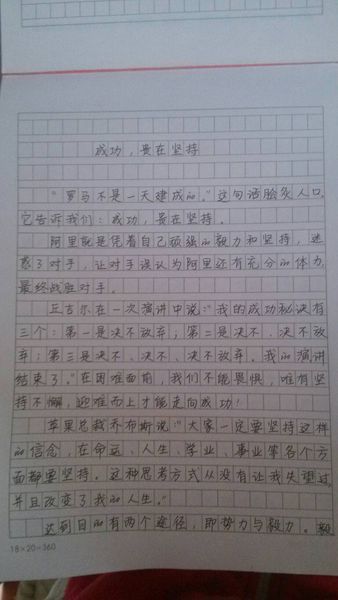 成功，贵在坚持
“罗马不是一天建成的。”这句话脍炙人口，
它告诉我们：成功，贵在坚持。
阿里就是凭着自己顽强的毅力和坚持，迷
惑了对手，让对手误认为阿里还有充分的体力，
最终战胜对手。
丘吉尔在一次演讲中说：“我的成功秘诀有
三个：第一是决不放弃；第二是决不、决不放
弃；第三是决不、决不、决不放弃。我的演讲
结束了。”在困难面前，我们不能畏惧，唯有坚
持不懈，迎难而上才能走向成功！
苹果总裁乔布斯说：“大家一定要坚持这样
的信念，在命运、人生、学业、事业等各个方
面都要坚持。这种思考方式从没有让我失望过，
并且改变了我的人生。”
达到目的有两个途径，即势力与毅力。毅
18×20=360